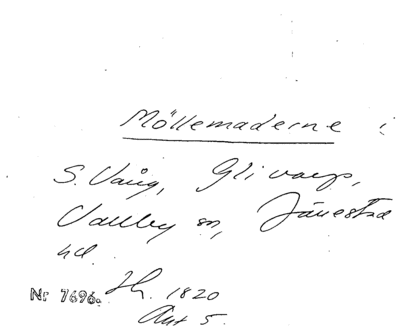 Möllemaderne i
S. Vång, Glivarp,
Vallby sn, Järrestad
hd.
Nr 7696. Jh. 1820
Akt 5.